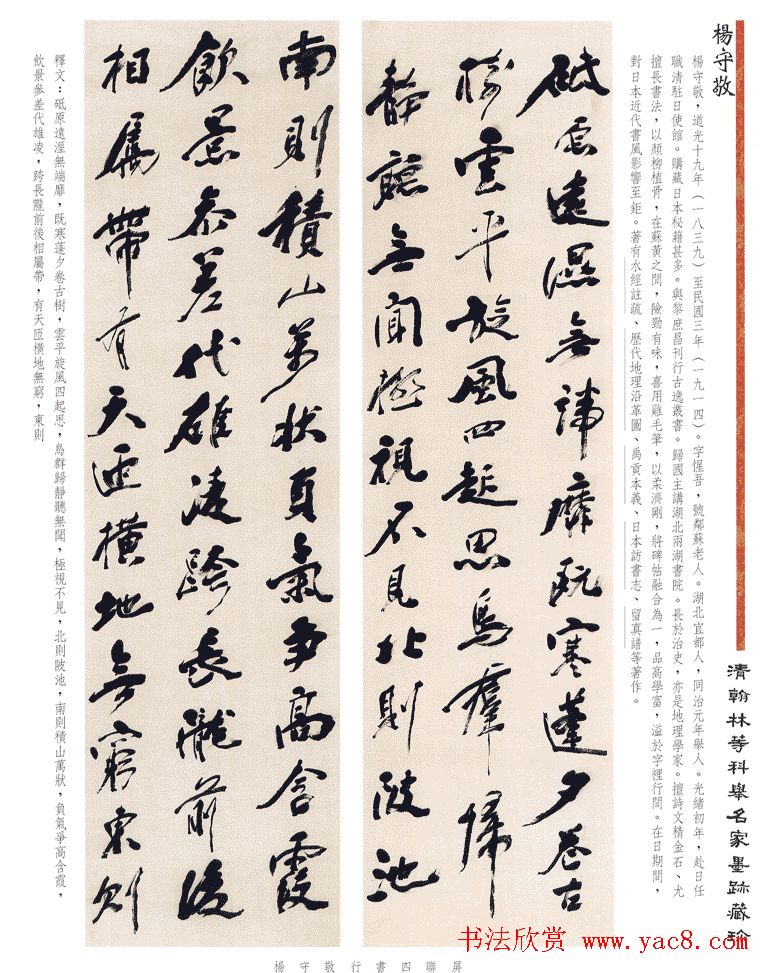 清翰林等科舉名家墨跡藏珍
楊守敬
楊守敬，道光十九年（一八三九）至民國三年（一九一四）。字惺吾，號鄰蘇老人。湖北宜都人，同治元年舉人。光緒初年，赴日任
職清駐日使館。購藏日本秘籍甚多。與黎庶昌刊行古逸叢書。歸國主講湖北兩湖書院。長於治史，亦是地理學家。擅詩文精金石、尤
擅長書法，以顏柳植骨，在蘇黃之間，險勁有味，喜用雞毛筆，以柔濟剛，將碑帖融合為一，品高學富，溢於字裡行間。在日期間，
對日本近代書風影響至鉅。著有水經註疏、歷代地理沿革圖、禹貢本義、日本訪書志、留真譜等著作。
砥原遠濕無諱靡既寒蓬夕卷古
樹雲平旋風四起思鳥羣歸
靜聽無聞極視不見北則陂池
南則積山萬狀負氣爭高含霞
飲景參差代雄淩跨長隴前後
相屬帶有天匝橫地無窮東則
釋文：砥原遠溼無端靡，既寒蓬夕卷古樹，雲平旋風四起思，鳥群歸靜聽無聞，極視不見，北則陂池，南則積山萬狀，負氣爭高含霞，
飲景參差代雄凌，跨長隴前後相屬帶，有天匝橫地無窮，東則
楊守敬行書四聯屏
书法欣赏 www.yac8.com